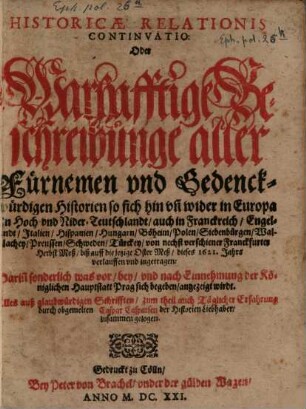 Eph. pol. 26 n
Eph. pol. 26 n
HISTORICÆ RELATIONIS
CONTINVATIO.
Oder
Warhafftige Be-
schreibunge aller
Fürnemen vnd Gedenck-
würdigen Historien so sich hin vñ wider in Europa
In Hoch vnd Nider-Teutschlandt / auch in Franckreich / Engel-
landt / Italien / Hispanien / Hungarn / Böheim / Polen / Siebenbürgen / Wal-
lachey / Preussen / Schweden / Türckey / von nechst verschiener Franckfurter
Herbst Meß / biß auff die jetzige Oster Meß / dieses 1621. Jahrs
verlauffen vnd zugetragen /
Darin sonderlich was vor / bey / vnd nach Einnehmung der Kö-
niglichen Hauptstatt Prag sich begeben / angezeigt würdt.
Alles auß glaubwürdigen Schrifften / zum theil auch Täglicher Erfahrung
durch obgemelten Caspar der Historien Liebhaber /
zusammen gezogen.
Gedruckt zu Cölln /
Bey Peter von Brachel / vnder der gülden Wagen /
ANNO M. DC. XXI.